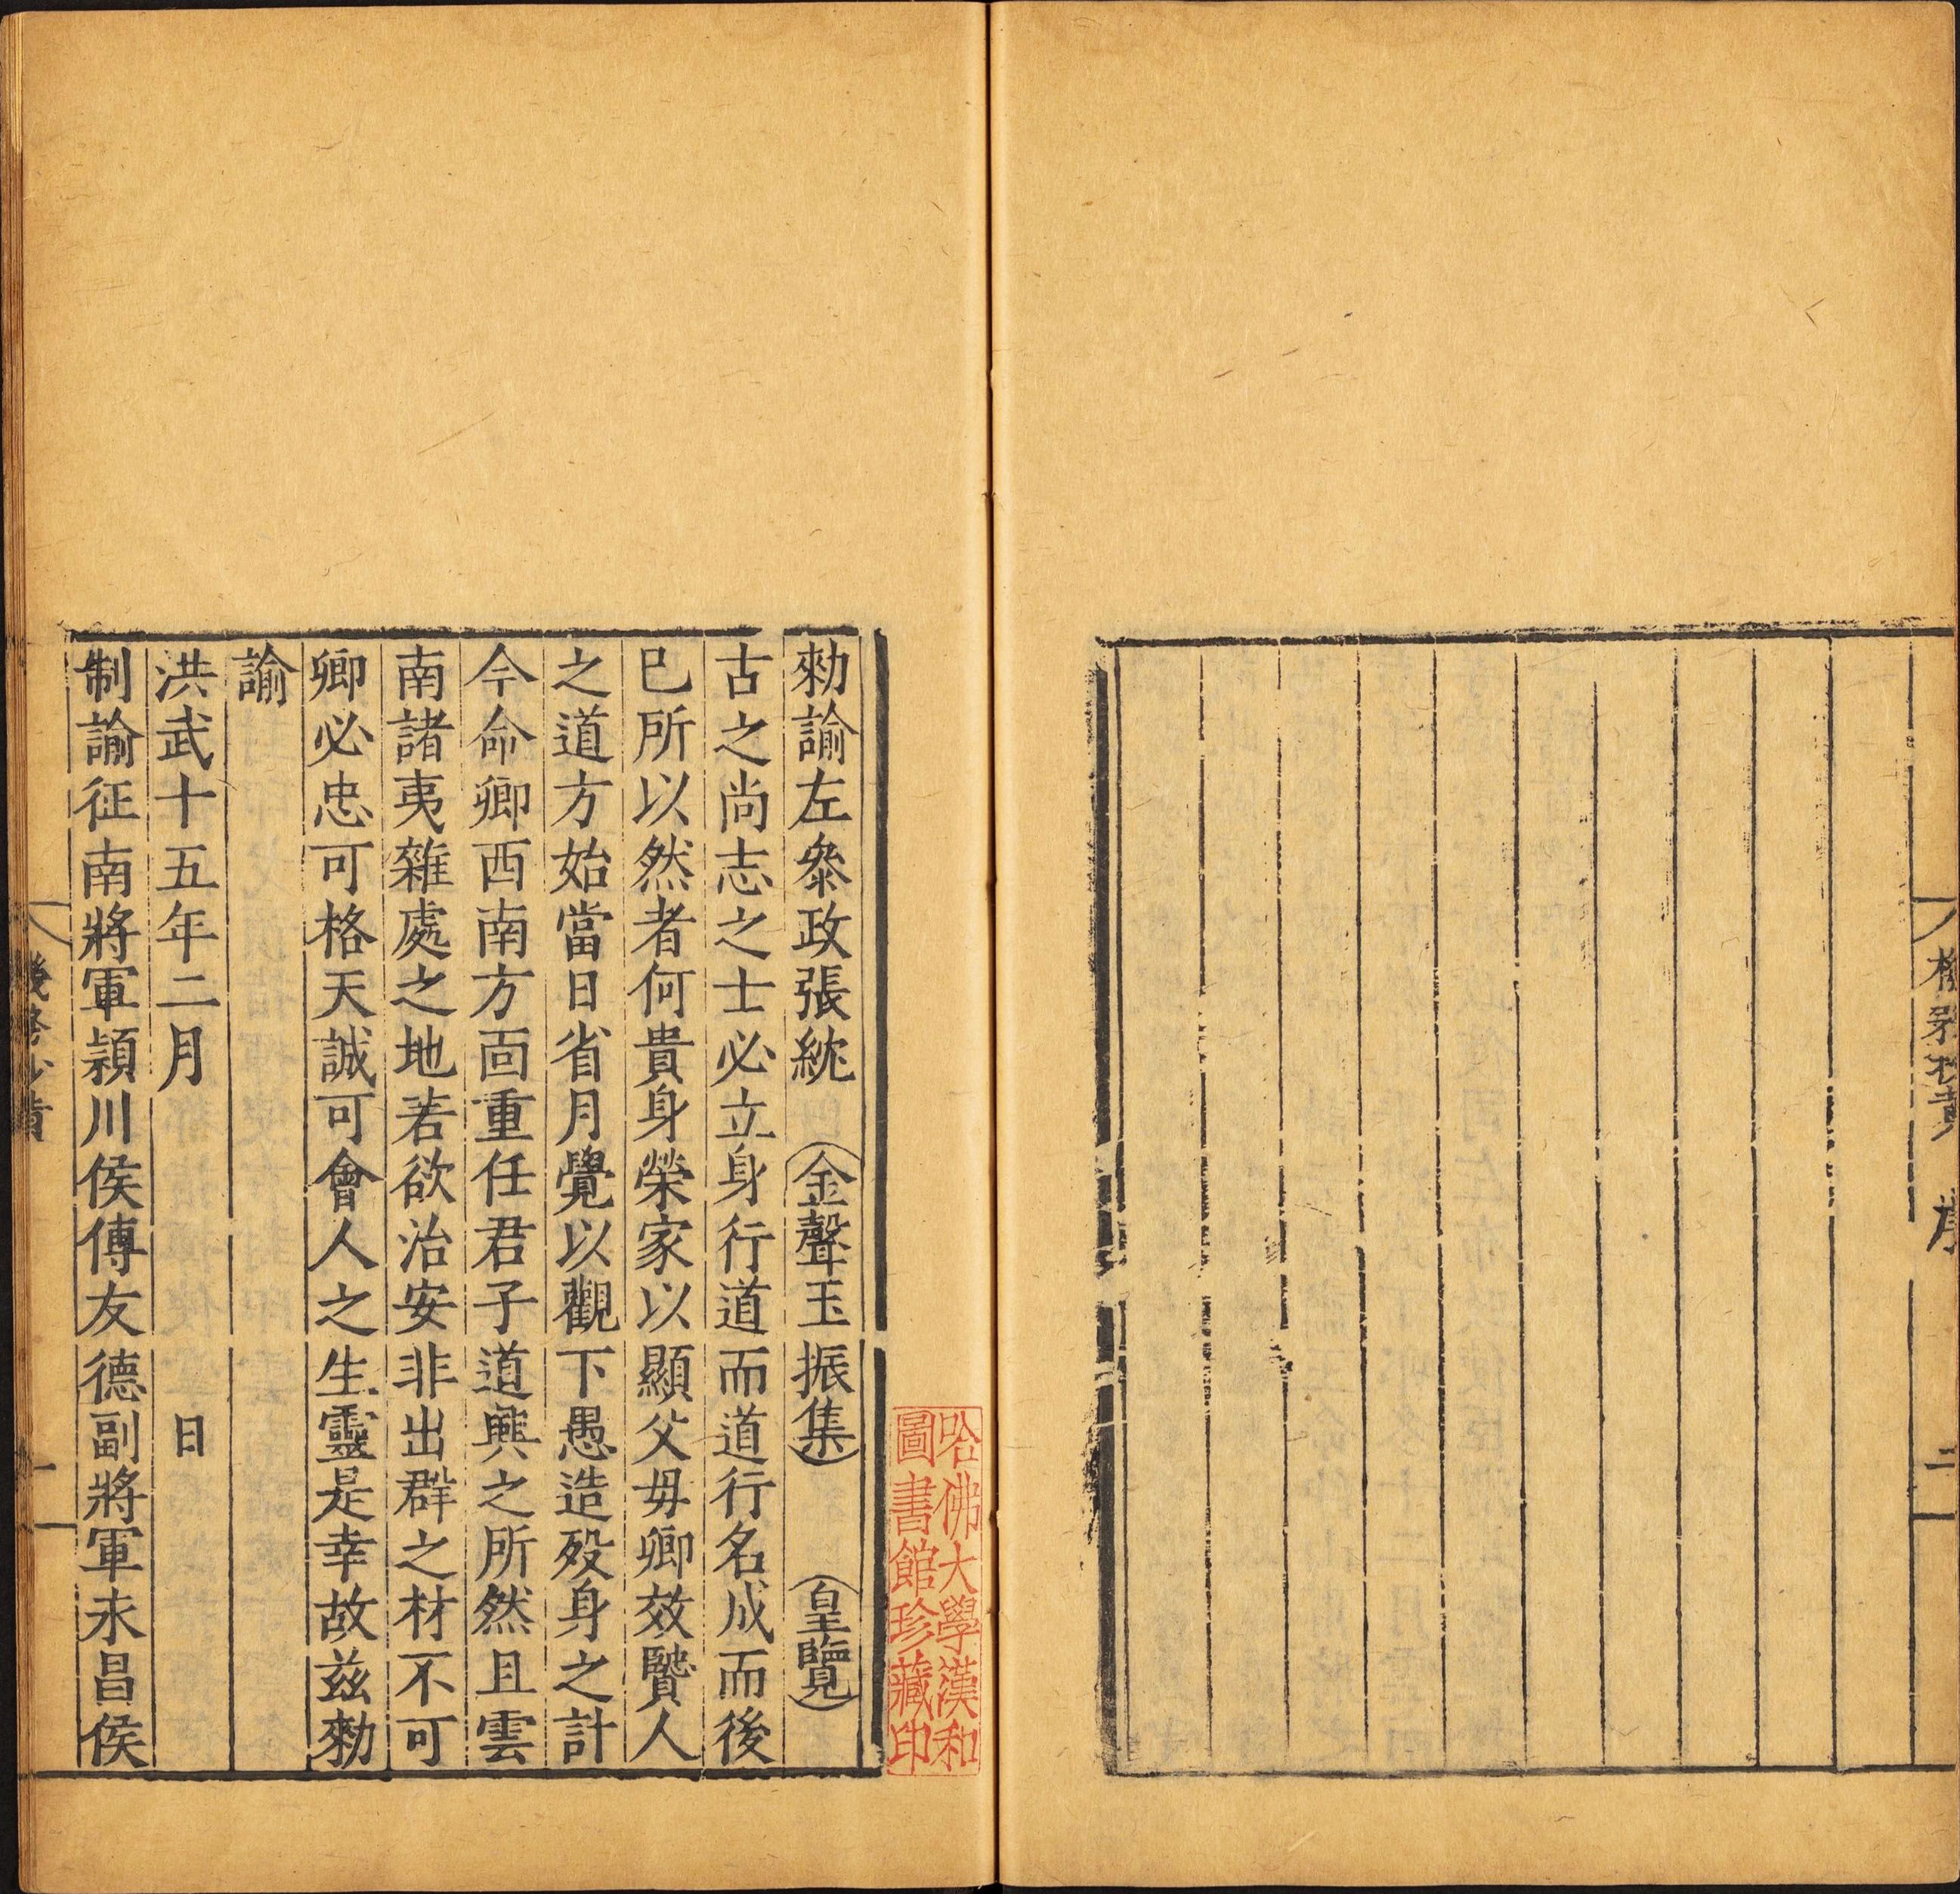 序
二
哈佛大學漢和
圖書館珍藏印
勑諭左叅政張紞 金聲玉振集 皇覽
古之尚志之士必立身行道而道行名成而後
已所以然者何貴身榮家以顯父毋卿效賢人
之道方始當日省月覺以觀下愚造歿身之計
今命卿西南方面重任君子道興之所然且雲
南諸夷雜處之地若欲治安非出群之材不可
卿必忠可格天誠可會人之生靈是幸故兹勑
諭
洪武十五年二月 日
制諭征南將軍潁川侯傅友德副將軍永昌侯
一